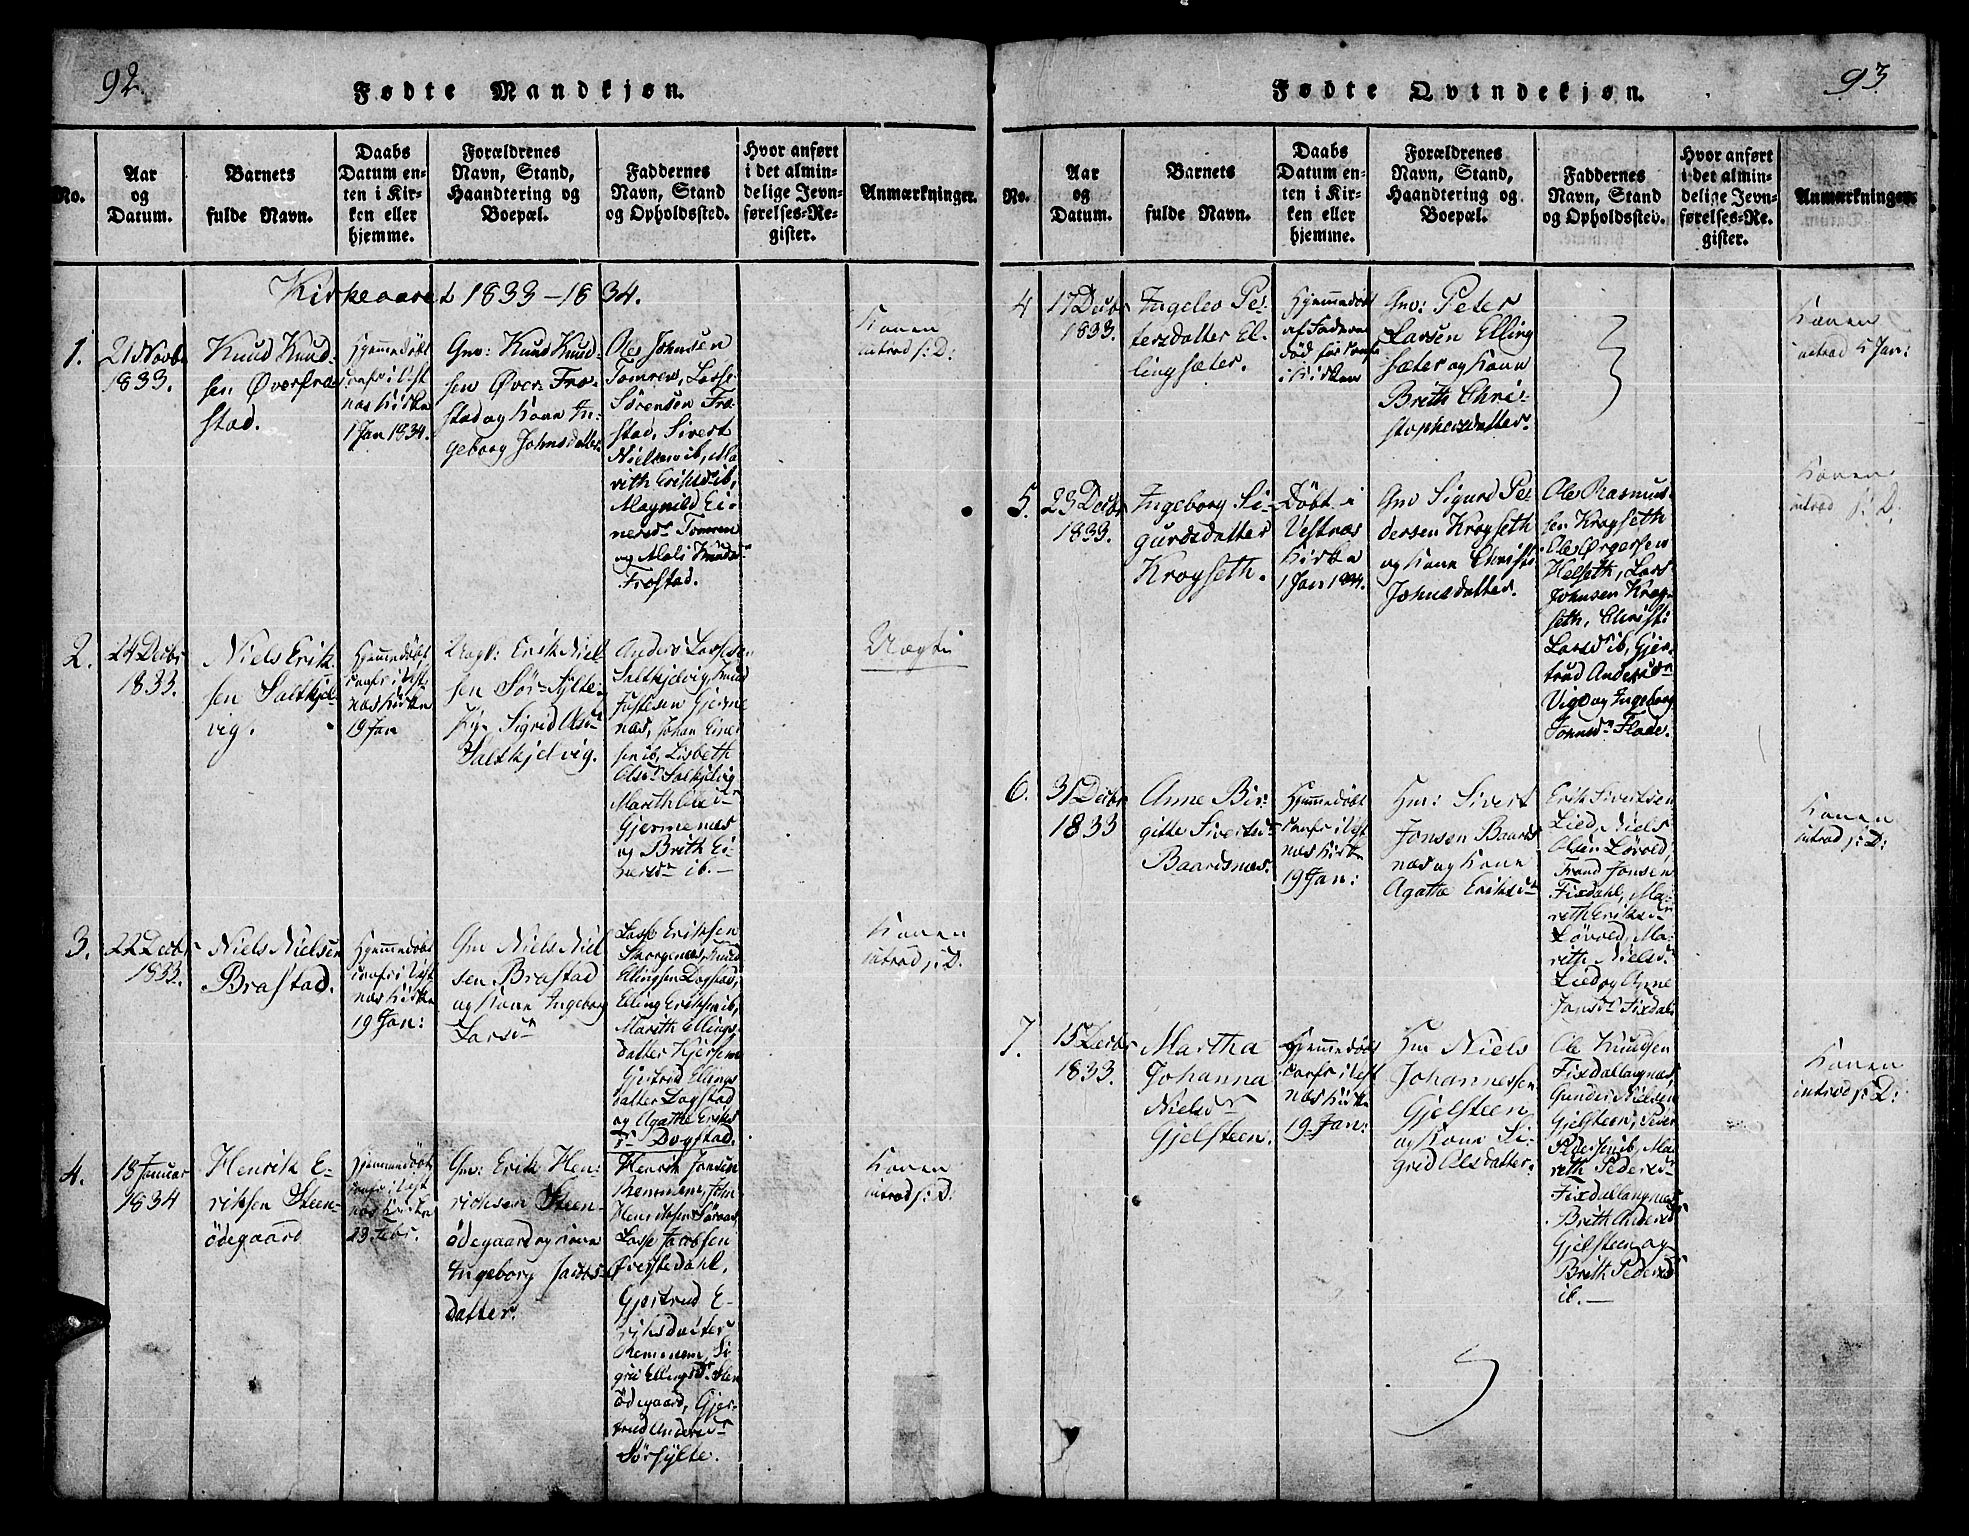 92.
Fødte Mandkjøn.
No.
Aar
og
Datum.
Barnets
fulde Navn.
Daabs
Datum en-
ten i Kir-
ken eller
hjemme.
Forældrenes
Navn, Stand,
Haandtering og
Boepæl.
Faddernes
Navn, Stand
og Opholdssted.
Hvor anført
i det almin-
delige Jevn-
førelses-Re-
gister.
Anmærkninger.
Kirkeaaret 1833-1834.
1.
21 Novbr
1833.
Knud Knud-
sen Øverfra-
stad.
Hjemmedøbt
confr i Vest
næs Kirke
1 Jan 1834.
Gm: Knud Knud-
sen Øver Fra-
stad og Kone In-
geborg Johnsdatter
Ole Johnsen
Tomren, Lasse
Sørensen Fra-
stad, Sivert
Nielsen ib, Ma
rith Eriksd ib,
Magnild Ei-
nersdr Tomren
og Mali Knudsdr
Frostad.
Konen
introd s: D:
2.
24 Decbr
1833.
Niels Erik
sen Saltkjel-
vig.
Hjemmedøbt
confr i Vest-
næs Kirke
19 Jan
Ungk: Erik Niel
sen Sør-Sylte
Pige Sigrid Olsdr
Saltkjelvig.
Anders Lassesen
Saltkjelvig, Knud
Jostesen Gjerme
næs, Johan Einer
sen ib, Lisbeth
Olsdr Saltkjelvig
Gjermenæs
og Brith Ei-
nersdr ib.-
Uægte
3.
22 Decbr
1833.
Niels Nielsen
Brastad.
Hjemmedøbt
confr i Vest
næs Kirke
19 Jan:
Gm Niels Niel
sen Brastad
og Kone Ingeborg
Larsdr
Lasse Eriksen
Skorgenæs, Knud
Ellingsen Dogstad,
Elling Eriksen ib,
Marith Ellings-
datter Kjersem
Gjertrud Ellings
datter Dogstad
og Agathe Eriks
dr Dogstad.
Konen
introd s: D.
4.
18 Januar
1834
Henrik E-
riksen Steen-
ødegaard
Hjemmedøbt
confr i Vest
næs Kirke
23 Febr.
Gm: Erik Hen-
richsen Steen-
ødegaard og Kone
Ingeborg Jacobs-
datter.
Henrik Jonsen
Remmem, John
Henriksen Søraas,
Lasse Jacobsen
Øverstedahl,
Gjertrud E-
riksdatter
Remmem, Si
gri Ellingsdr Sten
ødegaard, Gjer-
trud Andersdr
Sørsylte.
Konen
introd s: D:
93
Fødte Qvindekjøn.
No.
Aar
og
Datum.
Barnets
fulde Navn.
Daabs
Datum en-
ten i Kir-
ken eller
hjemme.
Forældrenes
Navn, Stand,
Haandtering og
Boepæl.
Faddernes
Navn, Stand
og Opholdssted.
Hvor anført
i det almin-
delige Jevn-
førelses-Re-
gister.
Anmærkninger.
4
17 Decbr
1833.
Ingelev Pe-
tersdatter El-
lingsæter.
Hjemmedøbt
af Faderen
død før Confr
i Kirken
Gm: Peter
Larsen Elling
sæter og Kone
Brith Chri-
stophersdatter.
Konen
introd 5 Jan:
5.
23 Decbr
1833.
Ingeborg Si-
gurdsdatter
Kragseth.
Døbt i
Vestnæs
Kirke
1 Jan 1834.
Gm Sigurd Pe-
dersen Kragseth
og Kone Christi
Johnsdatter.
Ole Rasmus-
sen Kragseth
Ole Ørgersen
Helseth, Lars
Johnsen Krag-
seth, Christi
Larsd ib, Gjer-
trud Andersdr
Vige og Ingeborg
Jonsdr Flode.
Konen
introd s: D.
6.
31 Decbr
1833
Anne Bir-
gitte Sivertsdr
Baardsnæs.
Hjemmedøbt
confr i Vest
næs Kirke
19 Jan:
Hm: Sivert
Jonsen Baards
næs og Kone
Agatha Eriksdr
Erik Sivertsen
Lied, Niels
Olsen Løvold,
Trond Jonsen
Fixdahl, Ma-
reth Eriksdr
Løvold, Ma-
rith Nielsdr
Lied og Anne
Jonsdr Fixdal
Konen
introd s: D:
7.
15 Decbr
1833.
Martha
Johanna
Nielsdr
Gjelsteen.
Hjemmedøbt
confr i Vest
næs Kirke
19 Jan:
Hm Niels
Johannessen
Gjelsteen
og Kone Si-
grid Olsdatter.
Ole Knudsen
Fixdallangnæs,
Gunder Nielsen
Gjelsteen, Peder
Pedersen ib, Ma
reth Pedersdr
Fixdallangnæs
Brith Andersdr
Gjelsteen og
Brith Pedersdr
ib.-
Konen
introd s: D: